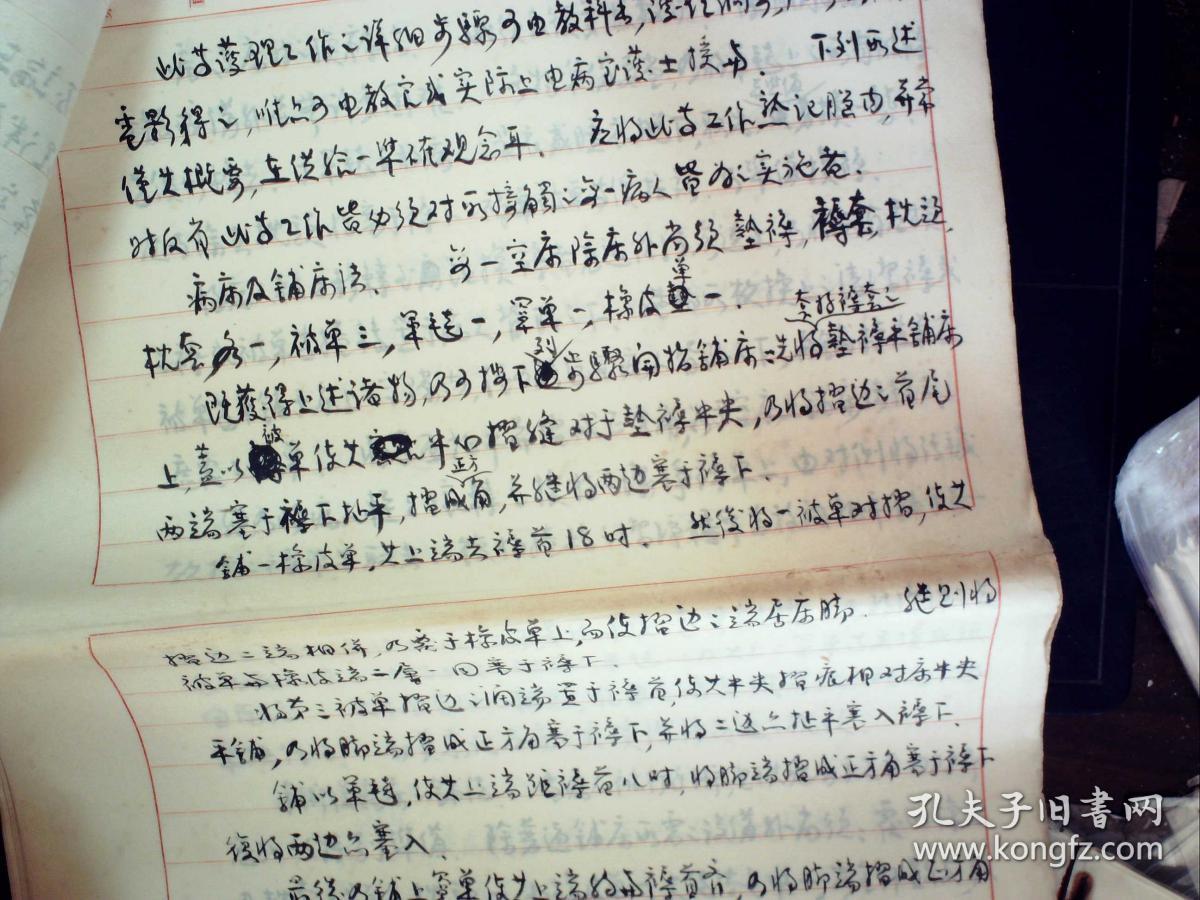 此等护理工作之详细步骤可由教科书,
电影得之,唯亦可由教官或实际上由病室护士授与. 下列所述
仅其概要,在供给一准确观念耳. 应将此等工作熟记脑内,
时反省此等工作皆必须对所接触之每一病人皆为之实施者.
病床及铺床法. 每一空床除床外尚须垫褥,褥套,枕头,
枕套各一,被单三,军毯一,罩单一,橡皮单一.
既获得上述诸物,乃可按下列步骤开始铺床:先将垫褥套好褥套之平铺床
上,盖以被单使其中间摺缝对于垫褥中央,乃将摺边之首尾
两端塞于褥下扯平,摺成正方角,并继将两边塞于褥下.
铺一橡皮单,其上端去褥首18吋. 然后将一被单对摺,使其
摺边二端相併,乃塞于橡皮单上,而使摺边之端居床脚. 继则将
被单与橡皮端二层一同塞于褥下.
将第三被单摺边之阔端置于褥首,使其中央摺痕相对床中央
平铺,乃将脚端摺成正方角塞于褥下,并将二边亦扯平塞入褥下.
铺以军毯,使其上端距褥首八吋,将脚端摺成正方角塞于褥下
復将两边亦塞入.
最後乃铺上罩单使其上端约与褥首齐,乃将脚端摺成正方角
孔夫子旧书网
www.kongfz.com